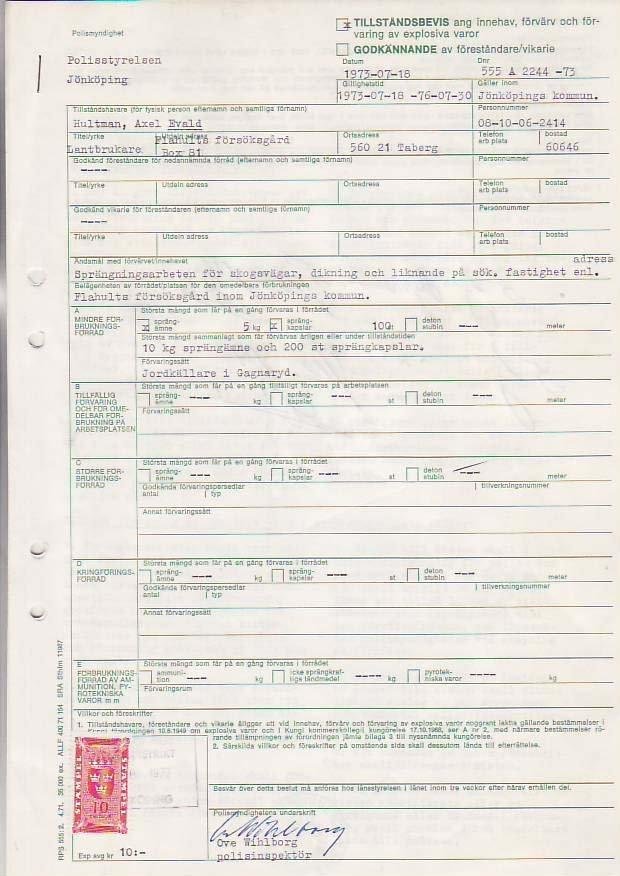 Polismyndighet
Polisstyrelsen
Jönköping
x TILLSTÅNDSBEVIS ang innehav, förvärv och för-
varing av explosiva varor
GODKÄNNANDE av föreståndare/vikarie
Datum Dnr
1973-07-18 555 A 2244 -73
Giltighetstid Gäller inom
1973-07-18 -76-07-30 Jönköpings kommun.
Tillståndshavare (för fysisk person efternamn och samtliga förnamn) Personnummer
Hultman, Axel Evald 08-10-06-2414
Titel/yrke Utdeln adress Ortsadress Telefon arb plats bostad
Lantbrukare Flahults försöksgård Box 81 560 21 Taberg 60646
Godkänd föreståndare för nedannämnda förråd (efternamn och samtliga förnamn) Personnummer
----
Titel/yrke Utdeln adress Ortsadress Telefon arb plats bostad
Godkänd vikarie för föreståndaren (efternamn och samtliga förnamn) Personnummer
----
Titel/yrke Utdeln adress Ortsadress Telefon arb plats bostad
Ändamål med förvärvet/innehavet adress
Sprängningsarbeten för skogsvägar, dikning och liknande på sök. fastighet enl.
Belägenheten av förrådet/platsen för den omedelbara förbrukningen
Flahults försöksgård inom Jönköpings kommun.
A
MINDRE FÖR-
BRUKNINGS-
FÖRRÅD
Största mängd som får på en gång förvaras i förrådet
x sprängämne 5 kg x sprängkapslar 100 detonstubin --- meter
Största mängd sammanlagt som får förvärvas årligen eller under tillståndstiden
10 kg sprängämne och 200 st sprängkapslar.
Förvaringssätt
Jordkällare i Gagnaryd.
B
TILLFÄLLIG
FÖRVARING
OCH FÖR OME-
DELBAR FÖR-
BRUKNING PÅ
ARBETSPLATSEN
Största mängd som får på en gång tillfälligt förvaras på arbetsplatsen
sprängämne --- kg sprängkapslar --- st detonstubin --- meter
Förvaringssätt
C
STÖRRE FÖR-
BRUKNINGS-
FÖRRÅD
Största mängd som får på en gång förvaras i förrådet
sprängämne --- kg sprängkapslar --- st detonstubin --- meter
Godkända förvaringspersedlar tillverkningsnummer
antal typ
Annat förvaringssätt
D
KRINGFÖRINGS-
FÖRRÅD
Största mängd som får på en gång förvaras i förrådet
sprängämne --- kg sprängkapslar --- st detonstubin --- meter
Godkända förvaringspersedlar tillverkningsnummer
antal typ
Annat förvaringssätt
E
FÖRBRUKNINGS-
FÖRRÅD AV AM-
MUNITION, PY-
ROTEKNISKA
VAROR m m
Största mängd som får på en gång förvaras i förrådet
ammunition --- kg icke sprängkraftiga tändmedel ---- kg pyrotekniska varor ---- kg
Förvaringsrum
Villkor och föreskrifter
1. Tillståndshavare, föreståndare och vikarie åligger att vid innehav, förvärv och förvaring av explosiva varor noggrant iaktta gällande bestämmelser i
Kungl förordningen 10.6.1949 om explosiva varor och i Kungl kommerskollegii kungörelse 17.10.1968, ser A nr 2, med närmare bestämmelser rö-
rande tillämpningen av förordningen jämte bilaga 3 till nyssnämnda kungörelse.
2. Särskilda villkor och föreskrifter på omstående sida skall dessutom lända till efterrättelse.
Besvär över detta beslut må anföras hos länsstyrelsen i länet inom tre veckor efter härav erhållen del.
Polismyndighetens underskrift
Ove Wihlborg
Ove Wihlborg
polisinspektör
STÄMPEL
10
Exp avg kr 10:-
RPS 555:2. 4.71. 35 000 ex. ALLF 400 71 164 SRA Sthlm 11987